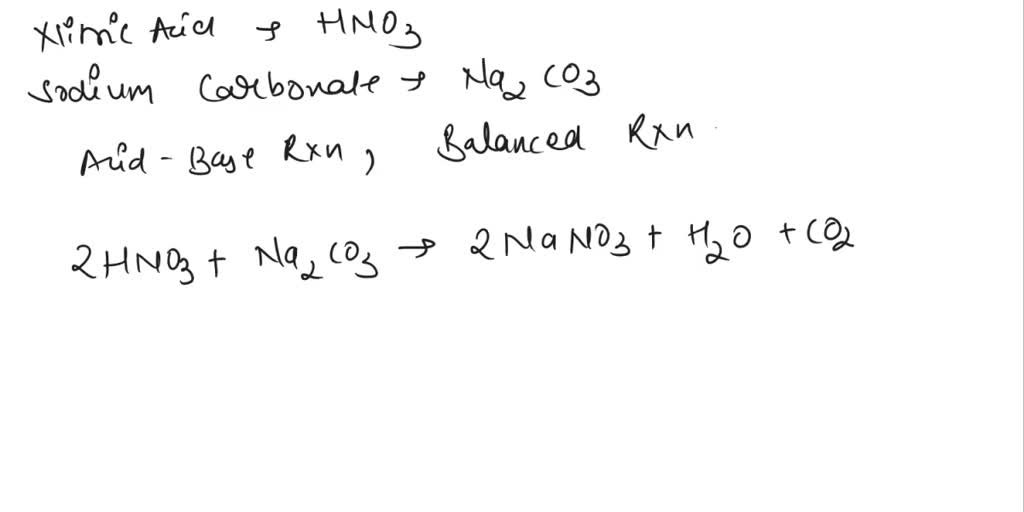 Nitric Acid → HNO3
Sodium Carbonate → Na2CO3
Acid-Base Rxn, Balanced Rxn
2HNO3 + Na2CO3 → 2NaNO3 + H2O + CO2